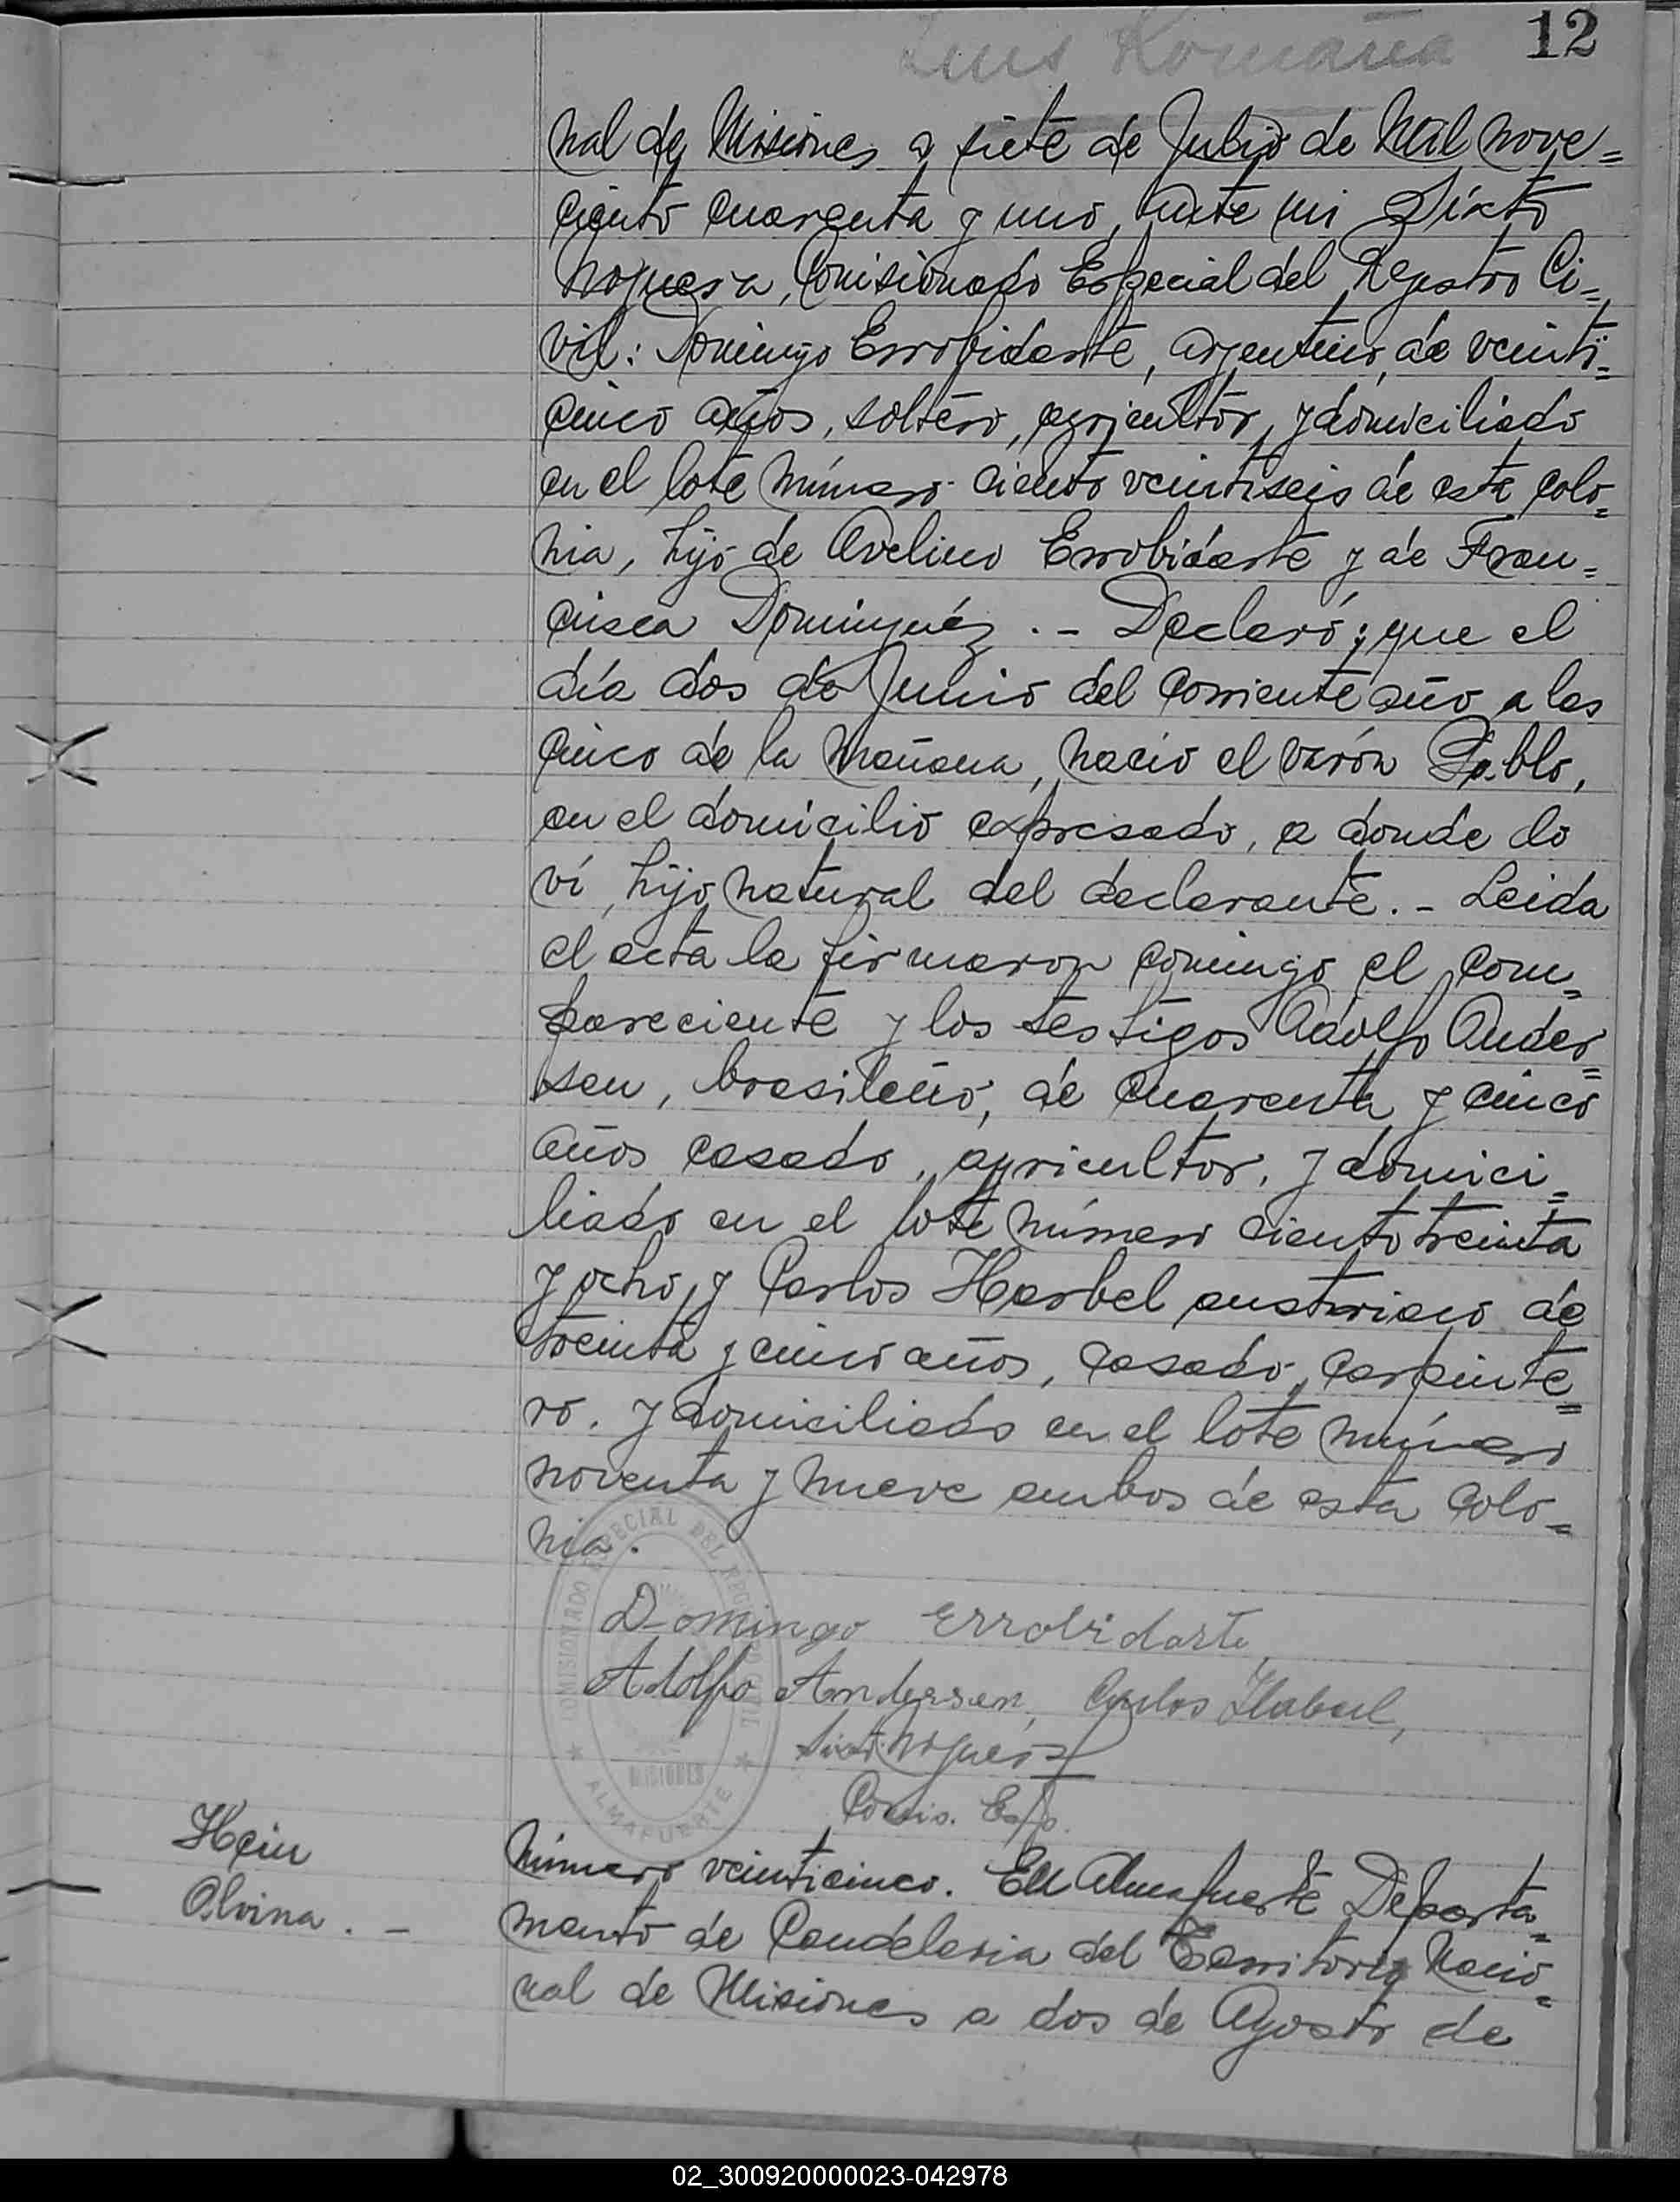 12
Luis Romaña
nal de Misiones a siete de Julio de Mil nove=
ciento cuarenta y uno, ante mi Sixto
Noguera, Comisionado Especial del Registro Ci=
vil: Domingo Errobidarte, argentino, de veinti=
cinco años, soltero, agricultor, y domiciliado
en el lote número ciento veintiseis de esta colo=
nia, hijo de Avelino Errobidarte y de Fran=
cisca Dominguéz .- Declaró; que el
día dos de Junio del corriente año a las
cinco de la mañana, nació el varón Pablo,
en el domicilio expresado, a donde lo
ví, hijo natural del declarante. - Leida
el acta la firmaron comingo el com=
pareciente y los testigos Adolfo Ander=
sen, brasileño, de cuarenta y cinco
años casado, agricultor, y domici=
liado en el lote número ciento treinta
y ocho, y Carlos Harbel austriaco de
treinta y cinco años, casado, carpinte=
ro. y domiciliado en el lote número
noventa y nueve ambos de esta Colo=
nia.
Domingo Errobidarte
Adolfo Andersen, Carlos Habel,
Sixto Noguera
Comis. Esp.
COMISIONADO ESPECIAL DEL REGISTRO CIVIL
MISIONES
★ ALMAFUERTE ★
Hein
Alvina. -
Número veinticinco. En Almafuerte Departa=
mento de Candelaria del Territorio Nacio=
nal de Misiones a dos de Agosto de
02_300920000023-042978